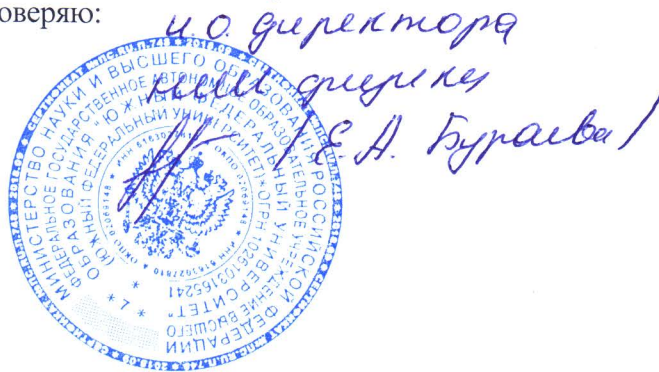 оверяю:
и.о. директора
НИИ физики
/Е.А. Бураева/
МИНИСТЕРСТВО НАУКИ И ВЫСШЕГО ОБРАЗОВАНИЯ РОССИЙСКОЙ ФЕДЕРАЦИИ
ФЕДЕРАЛЬНОЕ ГОСУДАРСТВЕННОЕ АВТОНОМНОЕ ОБРАЗОВАТЕЛЬНОЕ УЧРЕЖДЕНИЕ ВЫСШЕГО
ОБРАЗОВАНИЯ "ЮЖНЫЙ ФЕДЕРАЛЬНЫЙ УНИВЕРСИТЕТ"
(ЮЖНЫЙ ФЕДЕРАЛЬНЫЙ УНИВЕРСИТЕТ) * ОГРН 1026103165241
* 7 *